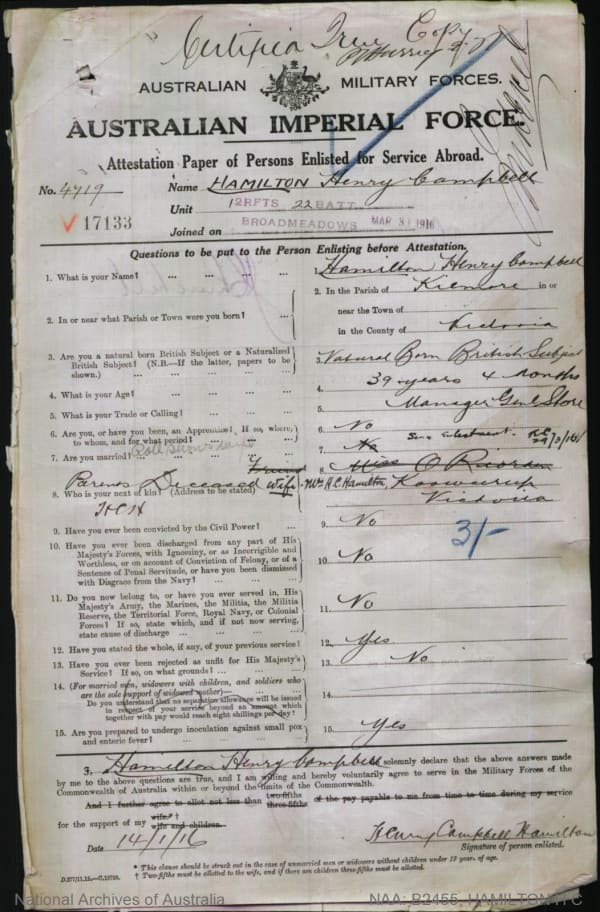 Certified True Copy
AUSTRALIAN MILITARY FORCES.
AUSTRALIAN IMPERIAL FORCE.
Attestation Paper of Persons Enlisted for Service Abroad.
No. 4719 Name HAMILTON Henry Campbell
17133 Unit 12RFTS 22BATT.
BROADMEADOWS MAR 31 1916
Joined on
Questions to be put to the Person Enlisting before Attestation.
1. What is your Name? ... ... ... ... 1. Hamilton Henry Campbell
2. In or near what Parish or Town were you born? ... 2. In the Parish of Kilmore in or
near the Town of
in the County of Victoria
3. Are you a natural born British Subject or a Naturalized 3. Natural Born British Subject
British Subject? (N.B.—If the latter, papers to be
shown.) ... ... ... ... ...
4. What is your Age? ... ... ... ... 4. 39 years 4 months
5. What is your Trade or Calling? ... ... ... 5. Manager Genl Store
6. Are you, or have you been, an Apprentice? If so, where, 6. No
to whom, and for what period? ... ... ...
7. Are you married? ... ... ... ... 7. No Since enlistment.
Parents Deceased Friend 8. Miss O Riordan
wife - Mrs H.C. Hamilton, Kooweerup
8. Who is your next of kin? (Address to be stated) Victoria
HCH
9. Have you ever been convicted by the Civil Power? ... 9. No
3/-
10. Have you ever been discharged from any part of His
Majesty's Forces, with Ignominy, or as Incorrigible and
Worthless, or on account of Conviction of Felony, or of a
Sentence of Penal Servitude, or have you been dismissed
with Disgrace from the Navy? ... ... ... 10. No
11. Do you now belong to, or have you ever served in, His
Majesty's Army, the Marines, the Militia, the Militia
Reserve, the Territorial Force, Royal Navy, or Colonial
Forces? If so, state which, and if not now serving,
state cause of discharge ... ... ... ... 11. No
12. Have you stated the whole, if any, of your previous service? 12. Yes
13. Have you ever been rejected as unfit for His Majesty's 13. No
Service? If so, on what grounds? ... ... ...
14. (For married men, widowers with children, and soldiers who
are the sole support of widowed mother)—
Do you understand that no separation allowance will be issued
in respect of your service beyond an amount which
together with pay would reach eight shillings per day?
15. Are you prepared to undergo inoculation against small pox 15. Yes
and enteric fever? ... ... ... ...
I, Hamilton Henry Campbell solemnly declare that the above answers made
by me to the above questions are true, and I am willing and hereby voluntarily agree to serve in the Military Forces of the
Commonwealth of Australia within or beyond the limits of the Commonwealth.
And I further agree to allot not less than two-fifths three-fifths of the pay payable to me from time to time during my service
for the support of my wife * † wife and children.
Henry Campbell Hamilton
Date 14/1/16 Signature of person enlisted.
* This clause should be struck out in the case of unmarried men or widowers without children under 18 years of age.
† Two-fifths must be allotted to the wife, and if there are children three-fifths must be allotted.
National Archives of Australia NAA: B2455, HAMILTON H C